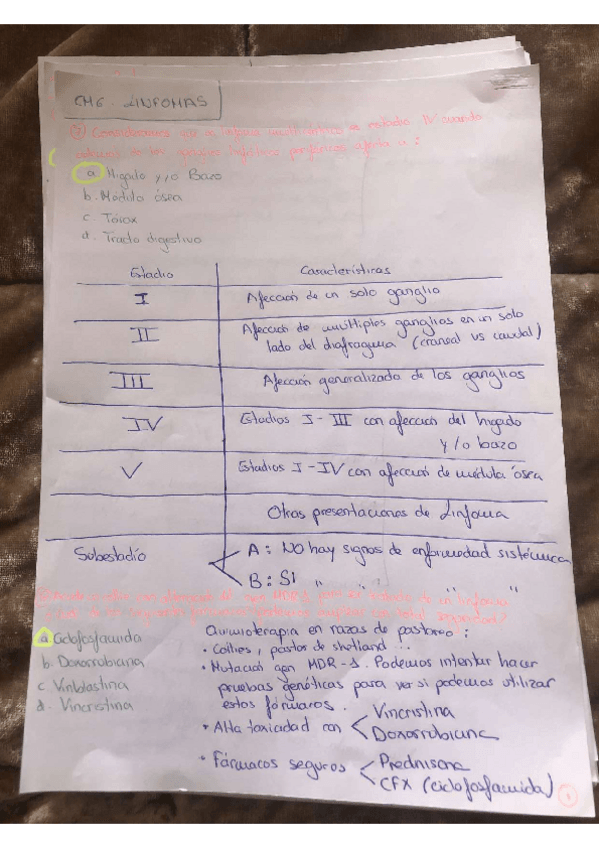 CM6. LINFOMAS
Consideramos que un linfoma multicéntrico es estadio IV cuando
además de los ganglios linfáticos periféricos afecta a:
a Hígado y/o Bazo
b. Médula ósea
c Tórax
d. Tracto digestivo
Estadio Características
I Afección de un solo ganglio
II Afección de múltiples ganglios en un solo
lado del diafragma (craneal vs caudal)
III Afección generalizada de los ganglios
IV Estadios I-III con afección del hígado
y/o bazo
V Estadios I-IV con afección de médula ósea
Otras presentaciones de Linfoma
Subestadío A: NO hay signos de enfermedad sistémica
B: SI " " " "
a. Ciclofosfamida
b. Doxorrubicina
c. Vinblastina
d. Vincristina
Quimioterapia en razas de pastoreo:
• Collies, pastor de shetland ...
• Mutación gen MDR-1. Podemos intentar hacer
pruebas genéticas para ver si podemos utilizar
estos fármacos.
• Alta toxicidad con Vincristina
Doxorrubicina
• Fármacos seguros Prednisona
CFX (ciclofosfamida)
1